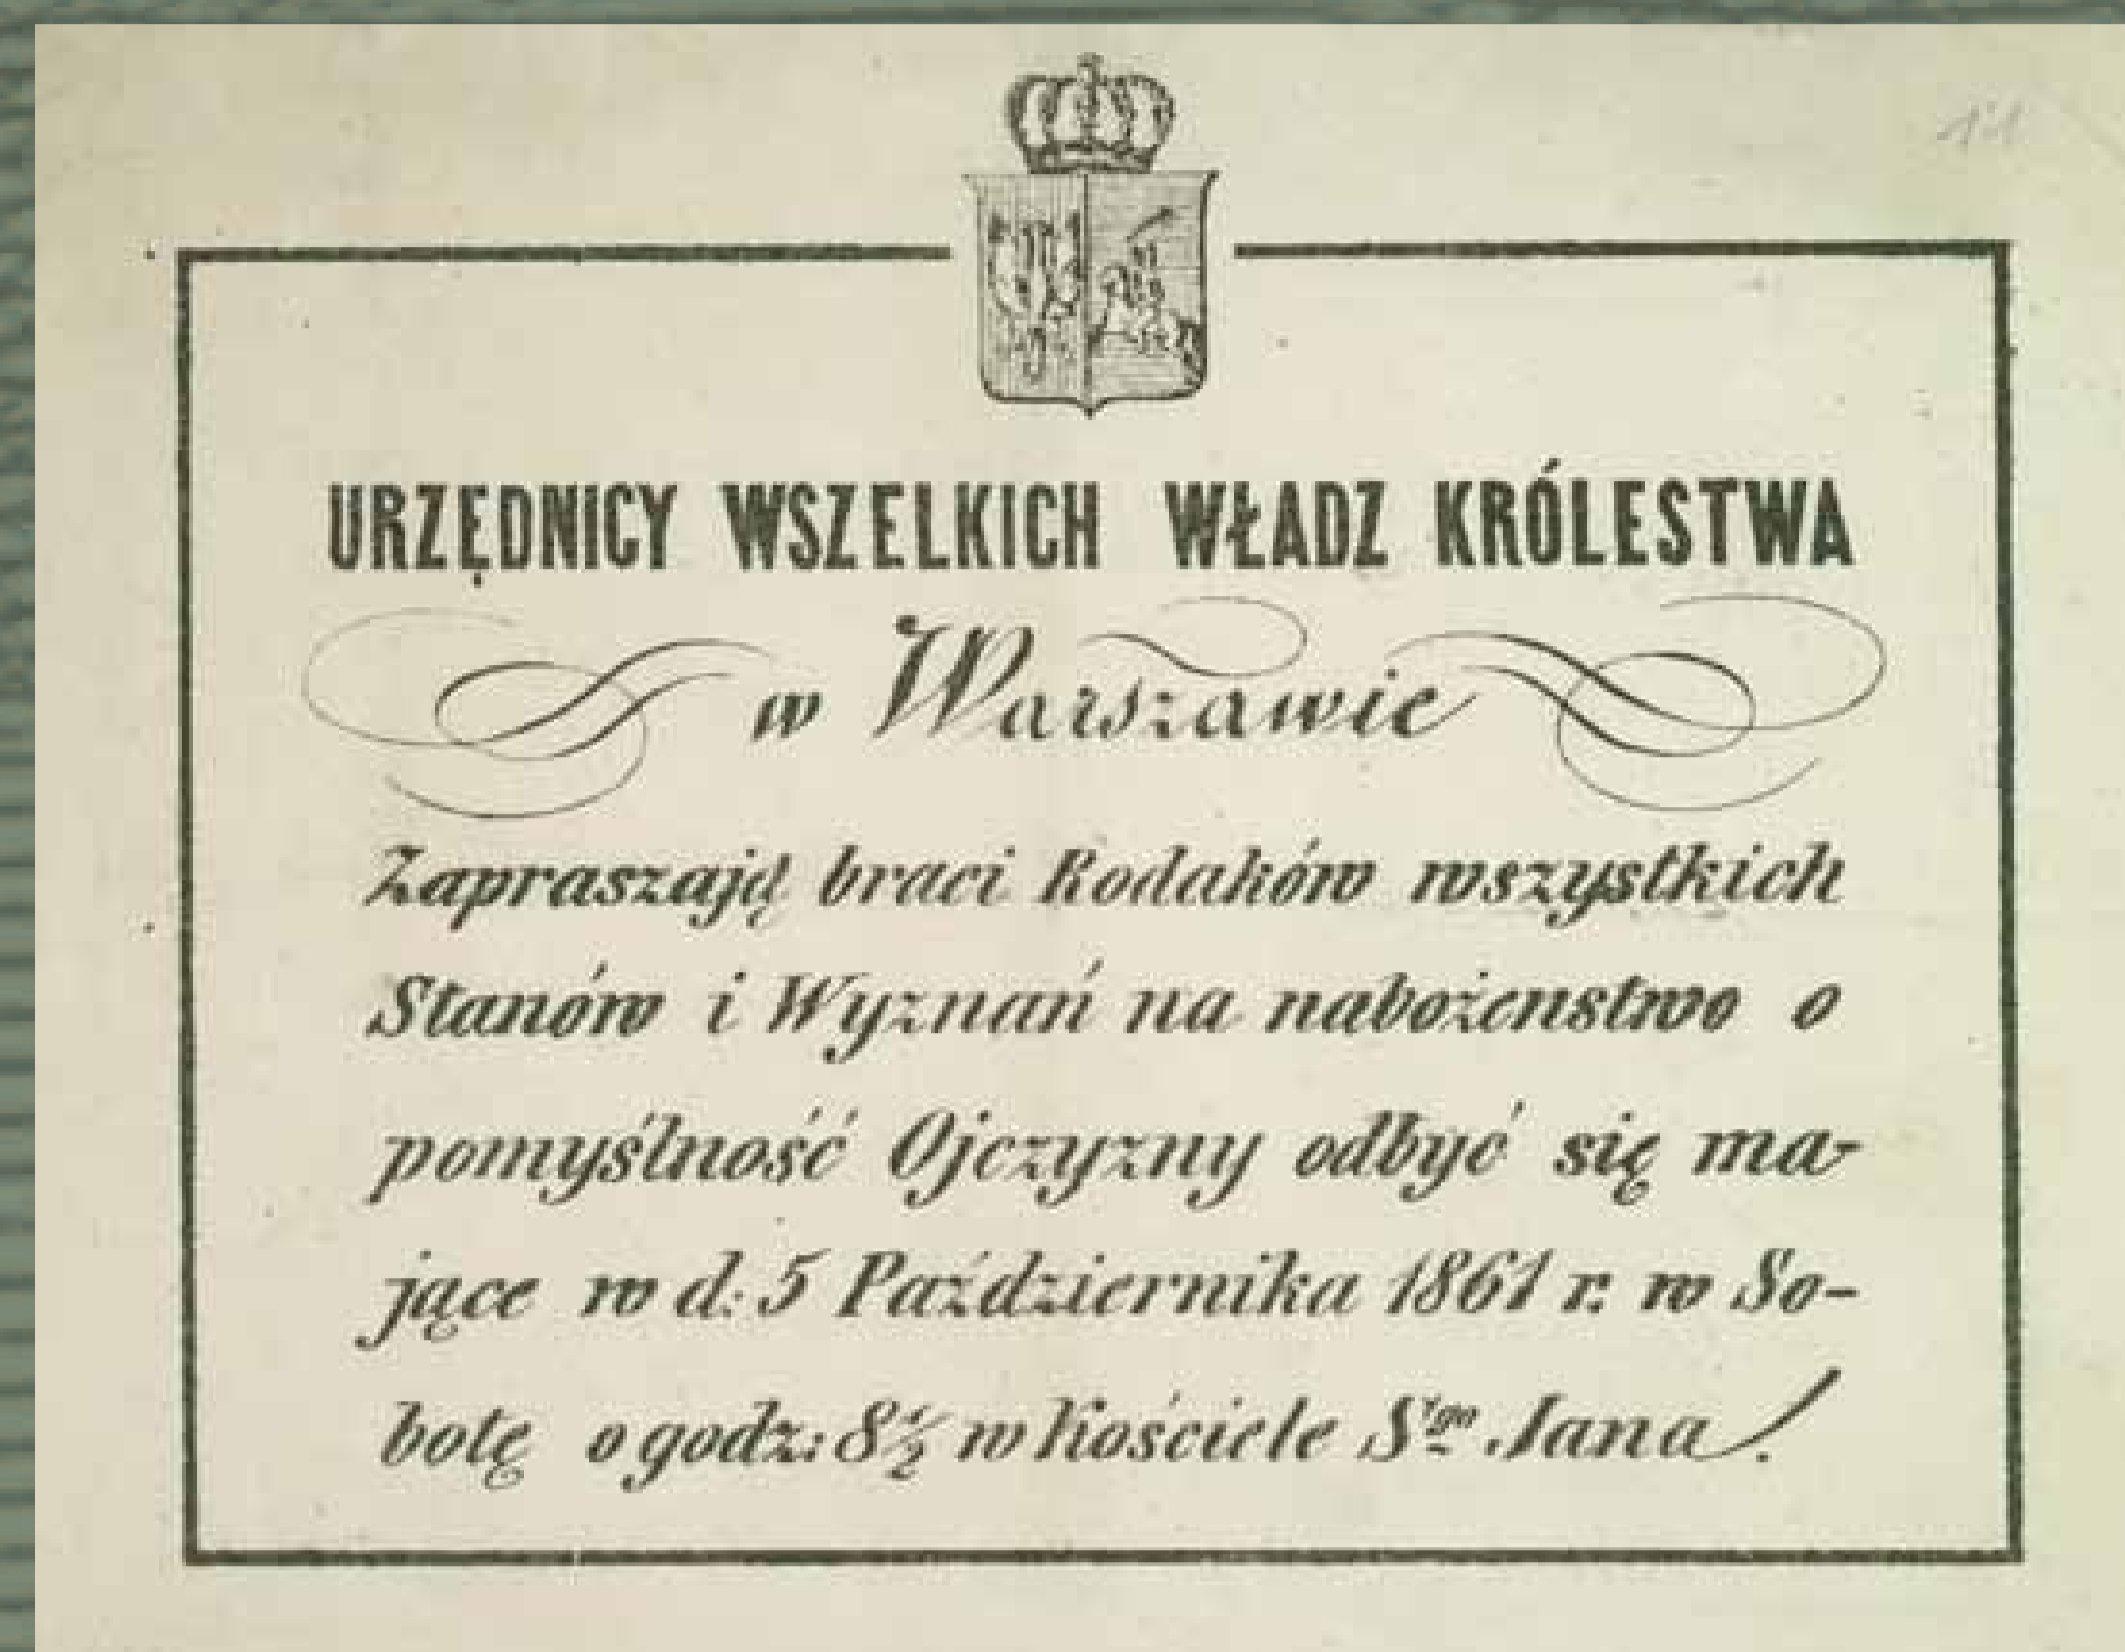 11
URZĘDNICY WSZELKICH WŁADZ KRÓLESTWA
w Warszawie
Zapraszają braci Rodaków wszystkich
Stanów i Wyznań na nabożenstwo o
pomyślność Ojczyzny odbyć się ma-
jące w d: 5 Października 1861 r. w So-
botę o godz: 8½ w Kościele Sgo Jana.